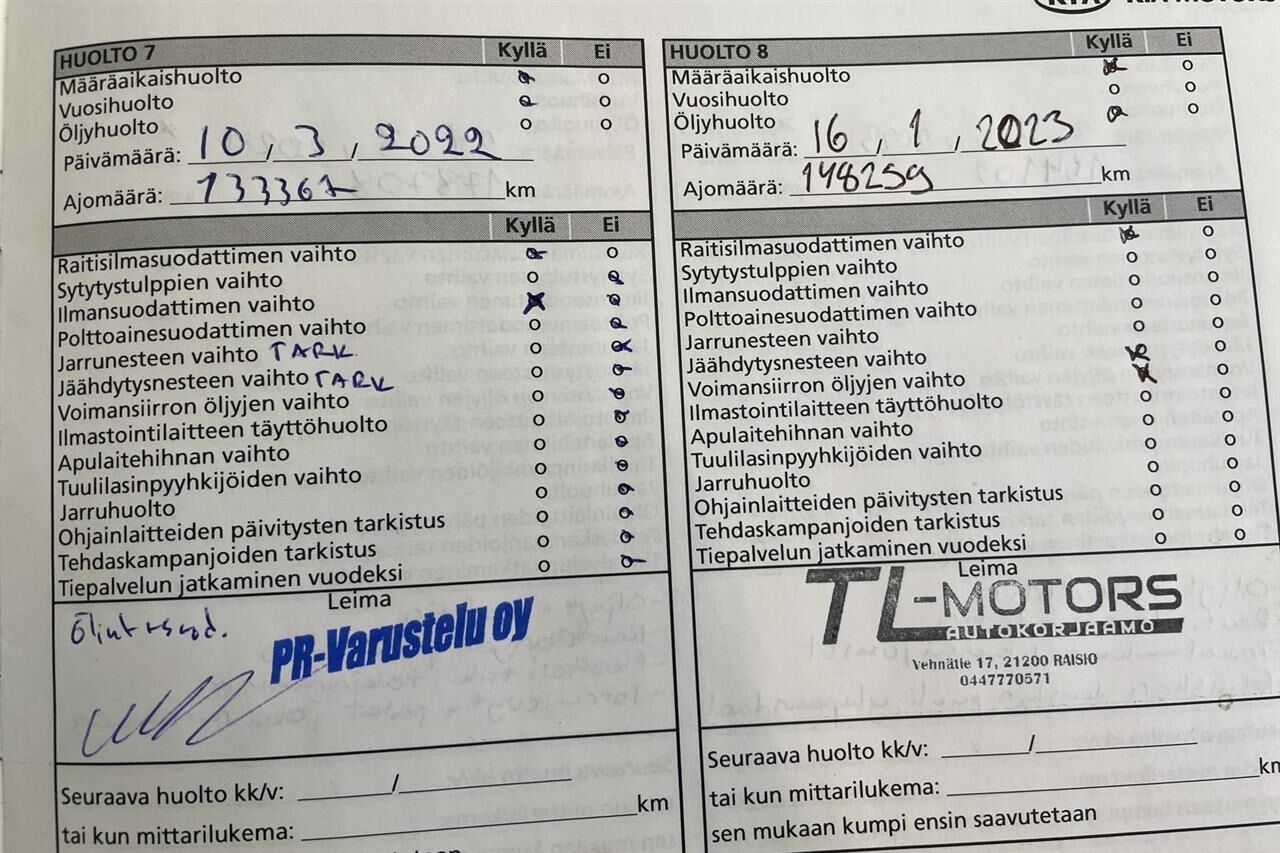 KIA KIA MOTORS
HUOLTO 7 Kyllä Ei
Määräaikaishuolto
Vuosihuolto
Öljyhuolto
Päivämäärä: 10, 3, 2022
Ajomäärä: 133367 km
Kyllä Ei
Raitisilmasuodattimen vaihto
Sytytystulppien vaihto
Ilmansuodattimen vaihto
Polttoainesuodattimen vaihto
Jarrunesteen vaihto TARK
Jäähdytysnesteen vaihto TARK
Voimansiirron öljyjen vaihto
Ilmastointilaitteen täyttöhuolto
Apulaitehihnan vaihto
Tuulilasinpyyhkijöiden vaihto
Jarruhuolto
Ohjainlaitteiden päivitysten tarkistus
Tehdaskampanjoiden tarkistus
Tiepalvelun jatkaminen vuodeksi
Leima
PR-Varustelu oy
Seuraava huolto kk/v: /
tai kun mittarilukema: km
HUOLTO 8 Kyllä Ei
Määräaikaishuolto
Vuosihuolto
Öljyhuolto
Päivämäärä: 16, 1, 2023
Ajomäärä: 148259 km
Kyllä Ei
Raitisilmasuodattimen vaihto
Sytytystulppien vaihto
Ilmansuodattimen vaihto
Polttoainesuodattimen vaihto
Jarrunesteen vaihto
Jäähdytysnesteen vaihto
Voimansiirron öljyjen vaihto
Ilmastointilaitteen täyttöhuolto
Apulaitehihnan vaihto
Tuulilasinpyyhkijöiden vaihto
Jarruhuolto
Ohjainlaitteiden päivitysten tarkistus
Tehdaskampanjoiden tarkistus
Tiepalvelun jatkaminen vuodeksi
Leima
TL-MOTORS
AUTOKORJAAMO
Vehnätie 17, 21200 RAISIO
0447770571
Seuraava huolto kk/v: /
tai kun mittarilukema: km
sen mukaan kumpi ensin saavutetaan